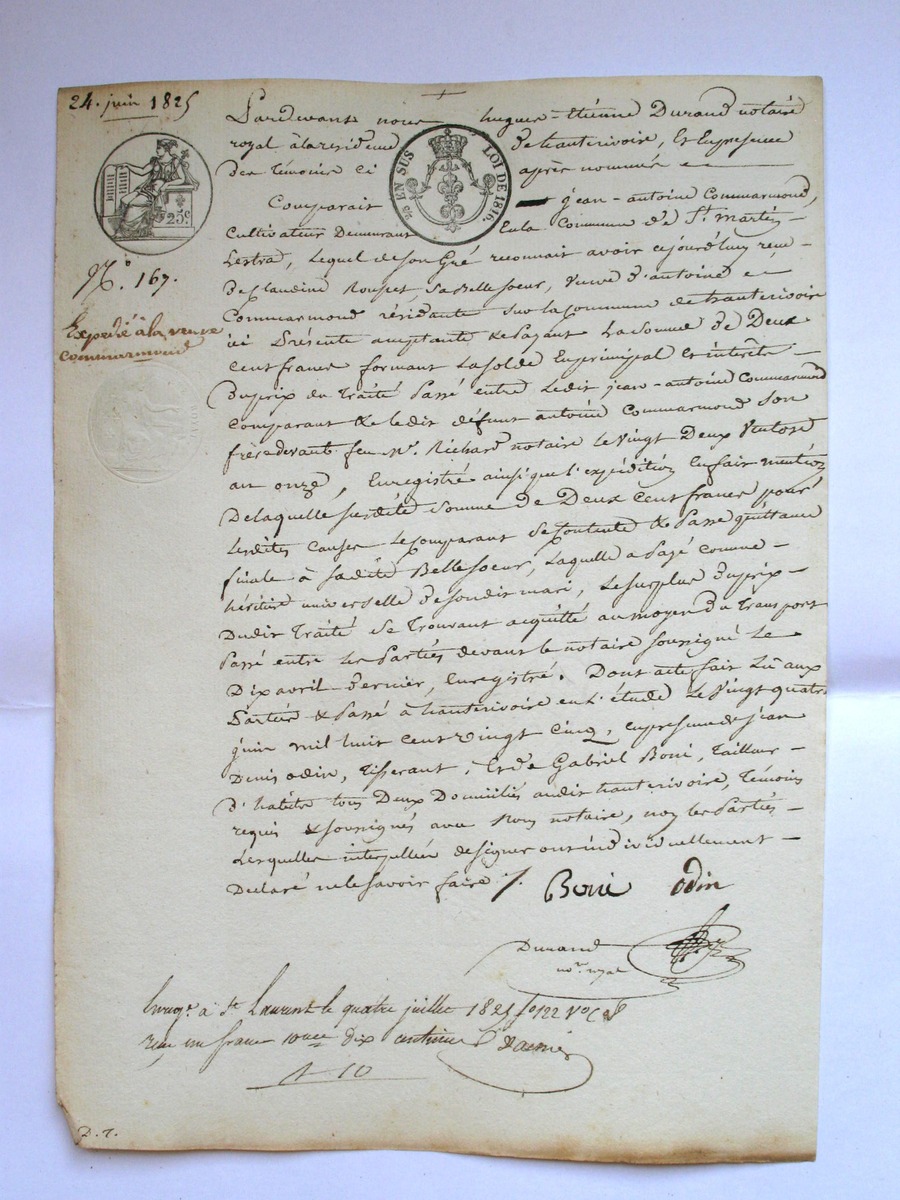 24. juin 1825
25c
EN SUS LOI DE 1816.
No. 167.
Expédié à la veuve
Commarmond
Pardevant nous hugues-étienne Durand notaire
royal à la résidence de hauterivoire, Et En présence
des témoins ci après nommés
Comparait jean-antoine Commarmond,
Cultivateur Demeurant En la Commune de St. martin
Lestra, Lequel de son Gré reconnait avoir cejourd'huy reçu
de Claudine Rouset, sa Belle Soeur, Veuve d'antoine
Commarmond résidante sur la Commune de hauterivoire
ici Présente acceptante & Payant La Somme de Deux
Cent francs formant La solde En principal et intérêts
Du prix du Traité Passé entre Ledit jean-antoine Commarmond
Comparant & le dit défunt antoine Commarmond Son
frère devant feu Me. Richard notaire le Vingt Deux Ventose
an onze, Enregistré ainsi que l'expédition En fait mention
De laquelle susdite Somme de Deux Cent francs pour
Lesdites Causes Le Comparant Se Contente & Passe quittance
finale à Sadite Belle Soeur, Laquelle a Payé Comme
héritière universelle de Son dit mari, Le Surplus du prix
Dudit Traité Se Trouvant acquitté au moyen du Transport
Passé entre Les Parties devant le notaire soussigné Le
Dix avril dernier, Enregistré. Dont acte fait Lu aux
Parties & Passé à hauterivoire en L'étude Le Vingt quatre
juin mil huit Cent Vingt Cinq, En présence de jean
Denis odin, Tisserant, Et de Gabriel Boni, Tailleur
D'habits tous Deux Domiciliés audit hauterivoire, Témoins
requis & soussignés avec Nous notaire, non les Parties
Lesquelles interpellées de signer ont individuellement
Déclaré ne le Savoir faire
Boni odin
Durand
nore. royal
Enregé. à St Laurent le quatre juillet 1825 fo 122 Vo
reçu un franc dix centimes
1 10
D. 7.